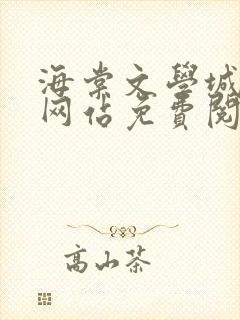 海棠文學城
网站免費閱
高山茶